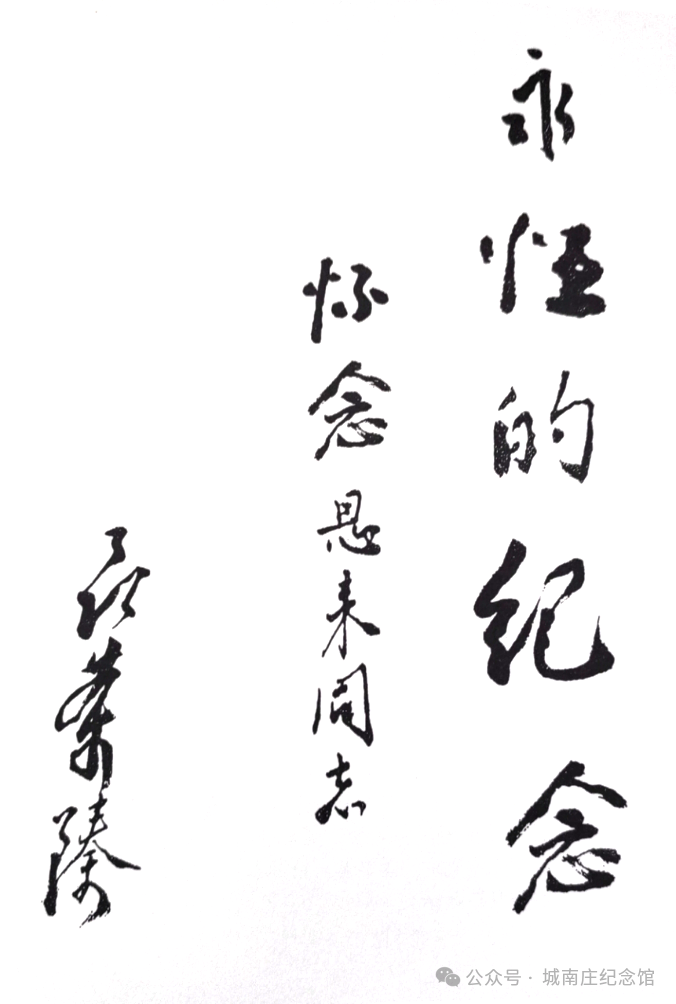 永恒的纪念
怀念恩来同志
聂荣臻
公众号·城南庄纪念馆